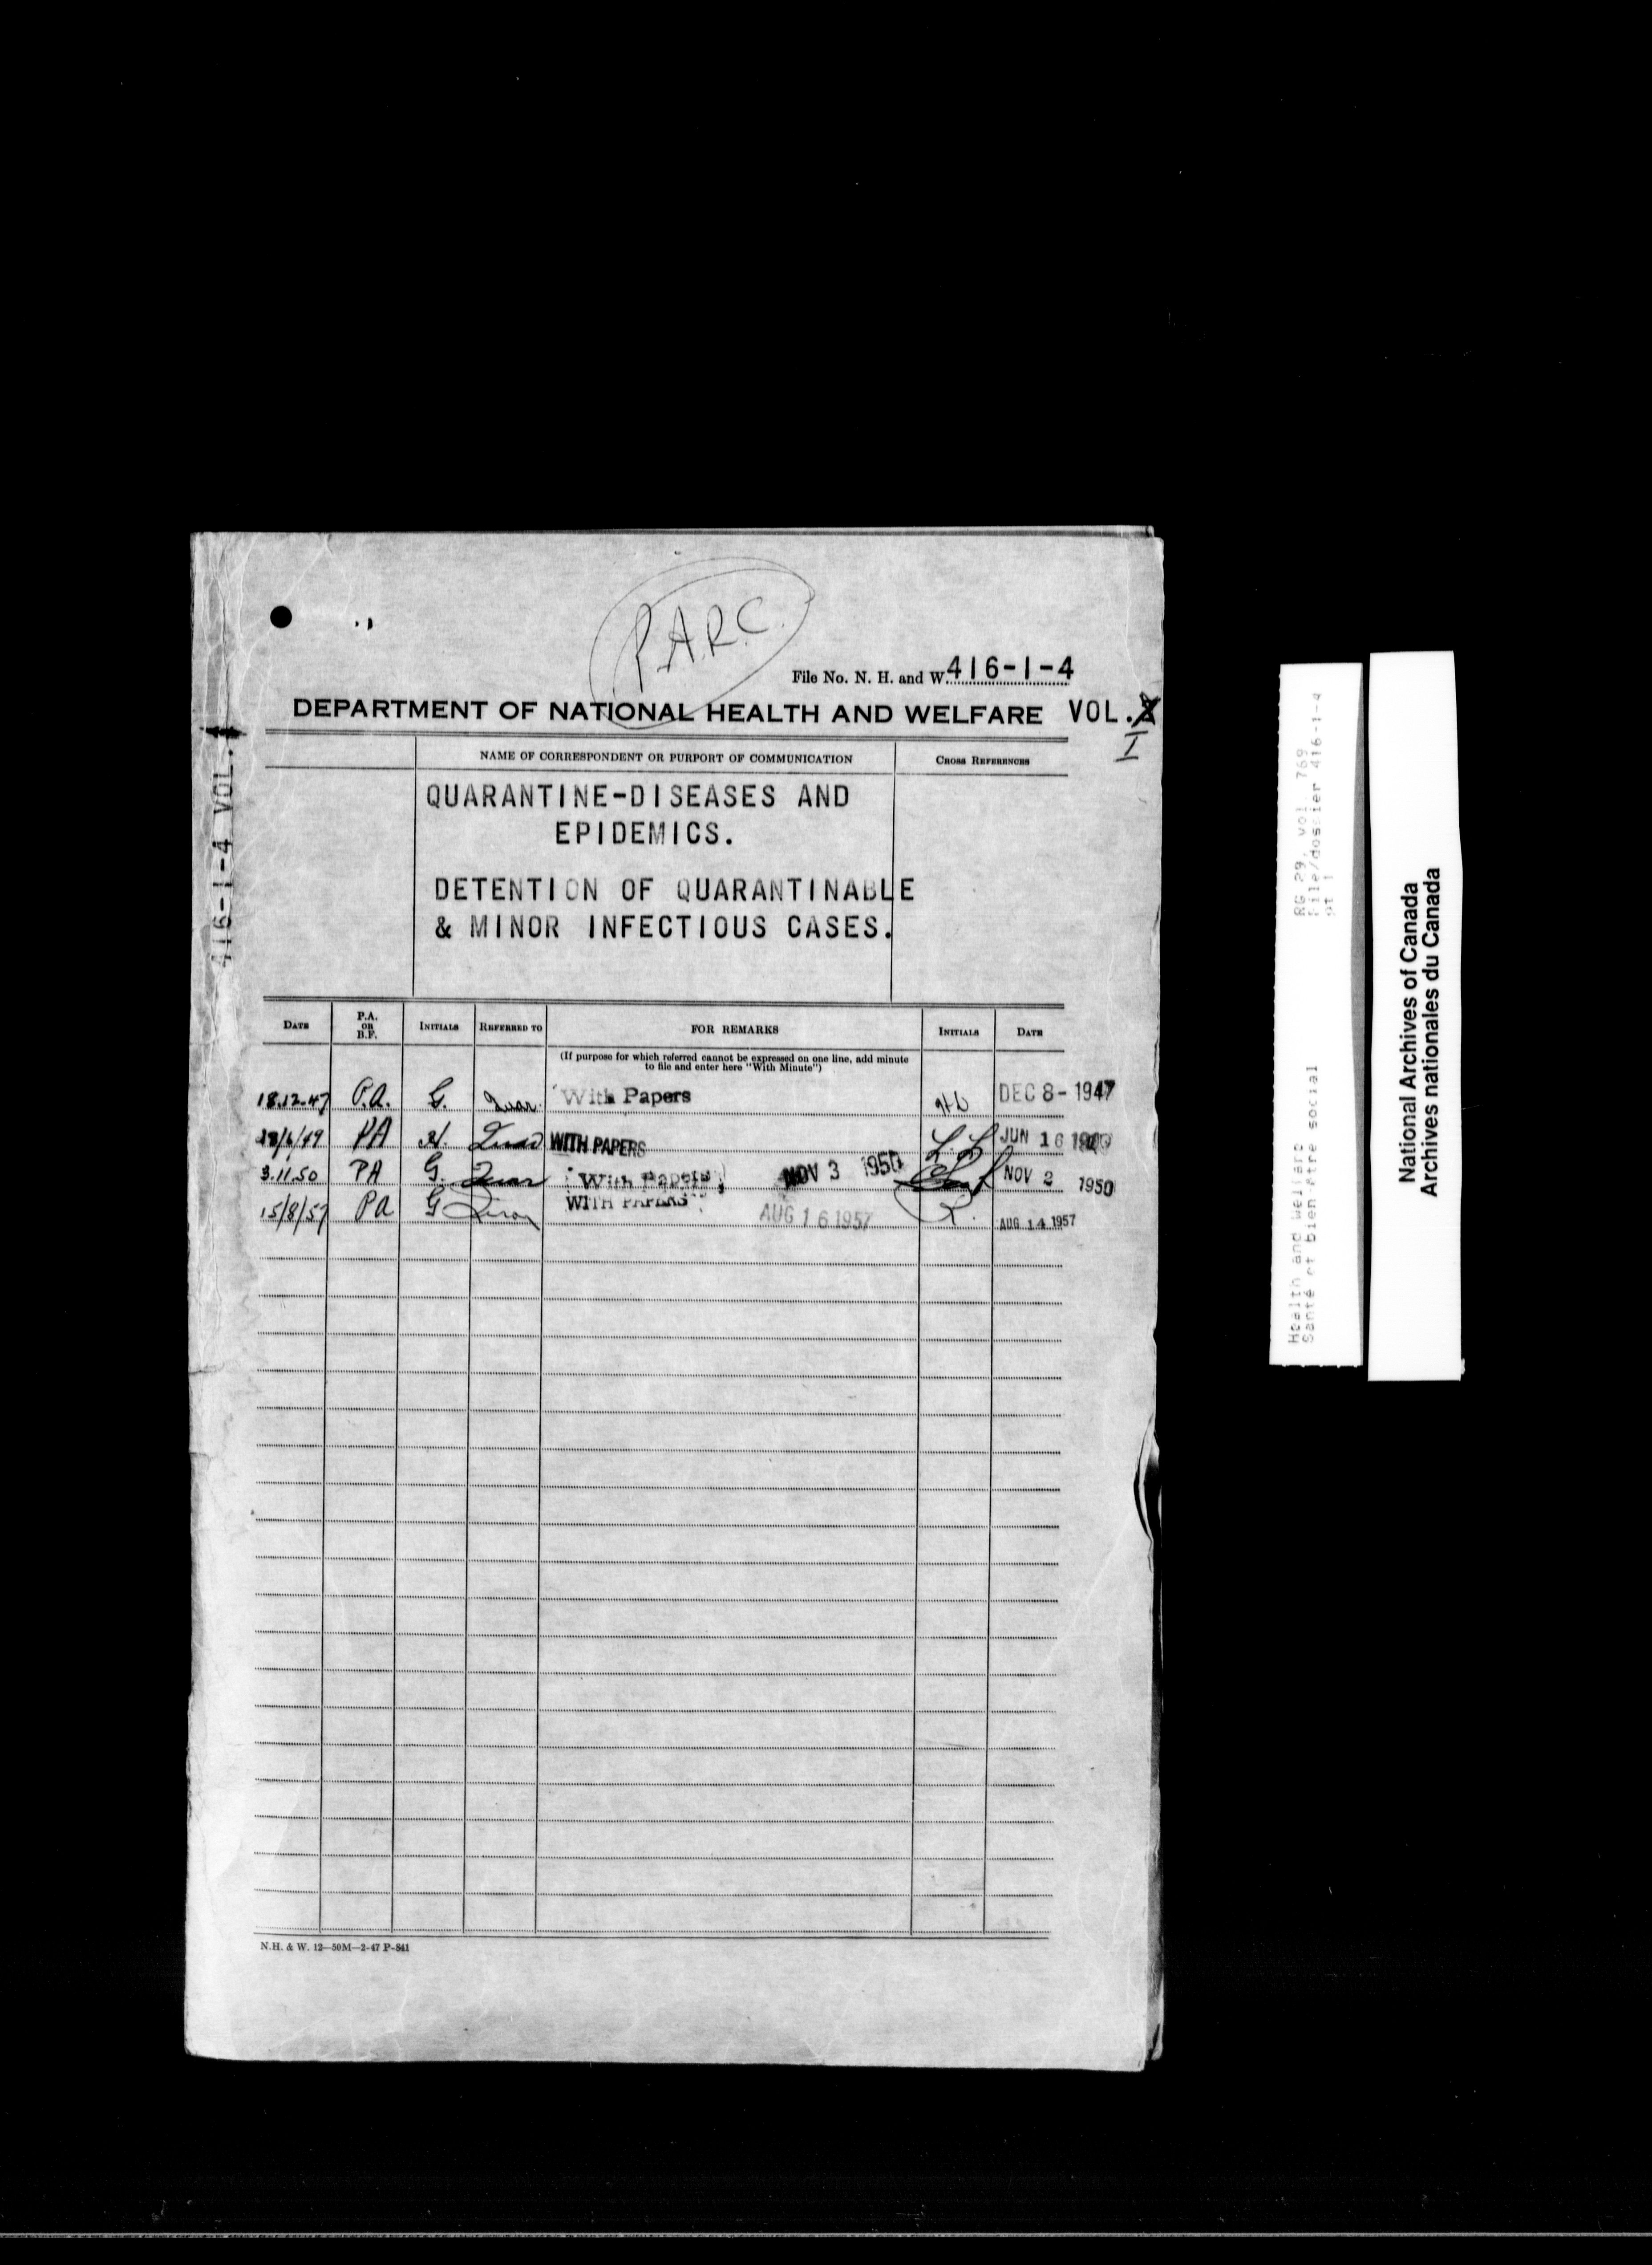 P.A.R.C.
File No. N. H. and W. 416-1-4
DEPARTMENT OF NATIONAL HEALTH AND WELFARE VOL.
I
NAME OF CORRESPONDENT OR PURPORT OF COMMUNICATION
CROSS REFERENCES
QUARANTINE-DISEASES AND
EPIDEMICS.
DETENTION OF QUARANTINABLE
& MINOR INFECTIOUS CASES.
416-1-4 VOL.
DATE P.A. OR B.F. INITIALS REFERRED TO FOR REMARKS INITIALS DATE
(If purpose for which referred cannot be expressed on one line, add minute
to file and enter here "With Minute")
18.12.47 P.A. G. Quar. With Papers DEC 8- 1947
/6/49 PA H. WITH PAPERS L.L. JUN 16
3.11.50 PA G. Quar With Papers NOV 3 1950 NOV 2 1950
15/8/57 PA G WITH PAPERS AUG 16 1957 R. AUG 14 1957
N.H. & W. 12—50M—2-47 P-841
RG 29, vol 769
File/dossier 416-1-4
pt 1
Health and Welfare
Santé et bien être social
National Archives of Canada
Archives nationales du Canada